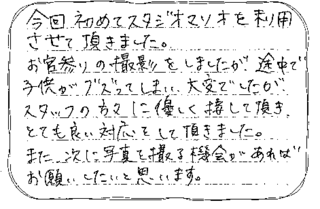 今回初めてスタジオマリオを利用
させて頂きました。
お宮参りの撮影をしましたが途中で
子供がグズってしまい大変でしたが、
スタッフの方々に優しく接して頂き、
とても良い対応をして頂きました。
また次に写真を撮る機会があれば
お願いしたいと思います。